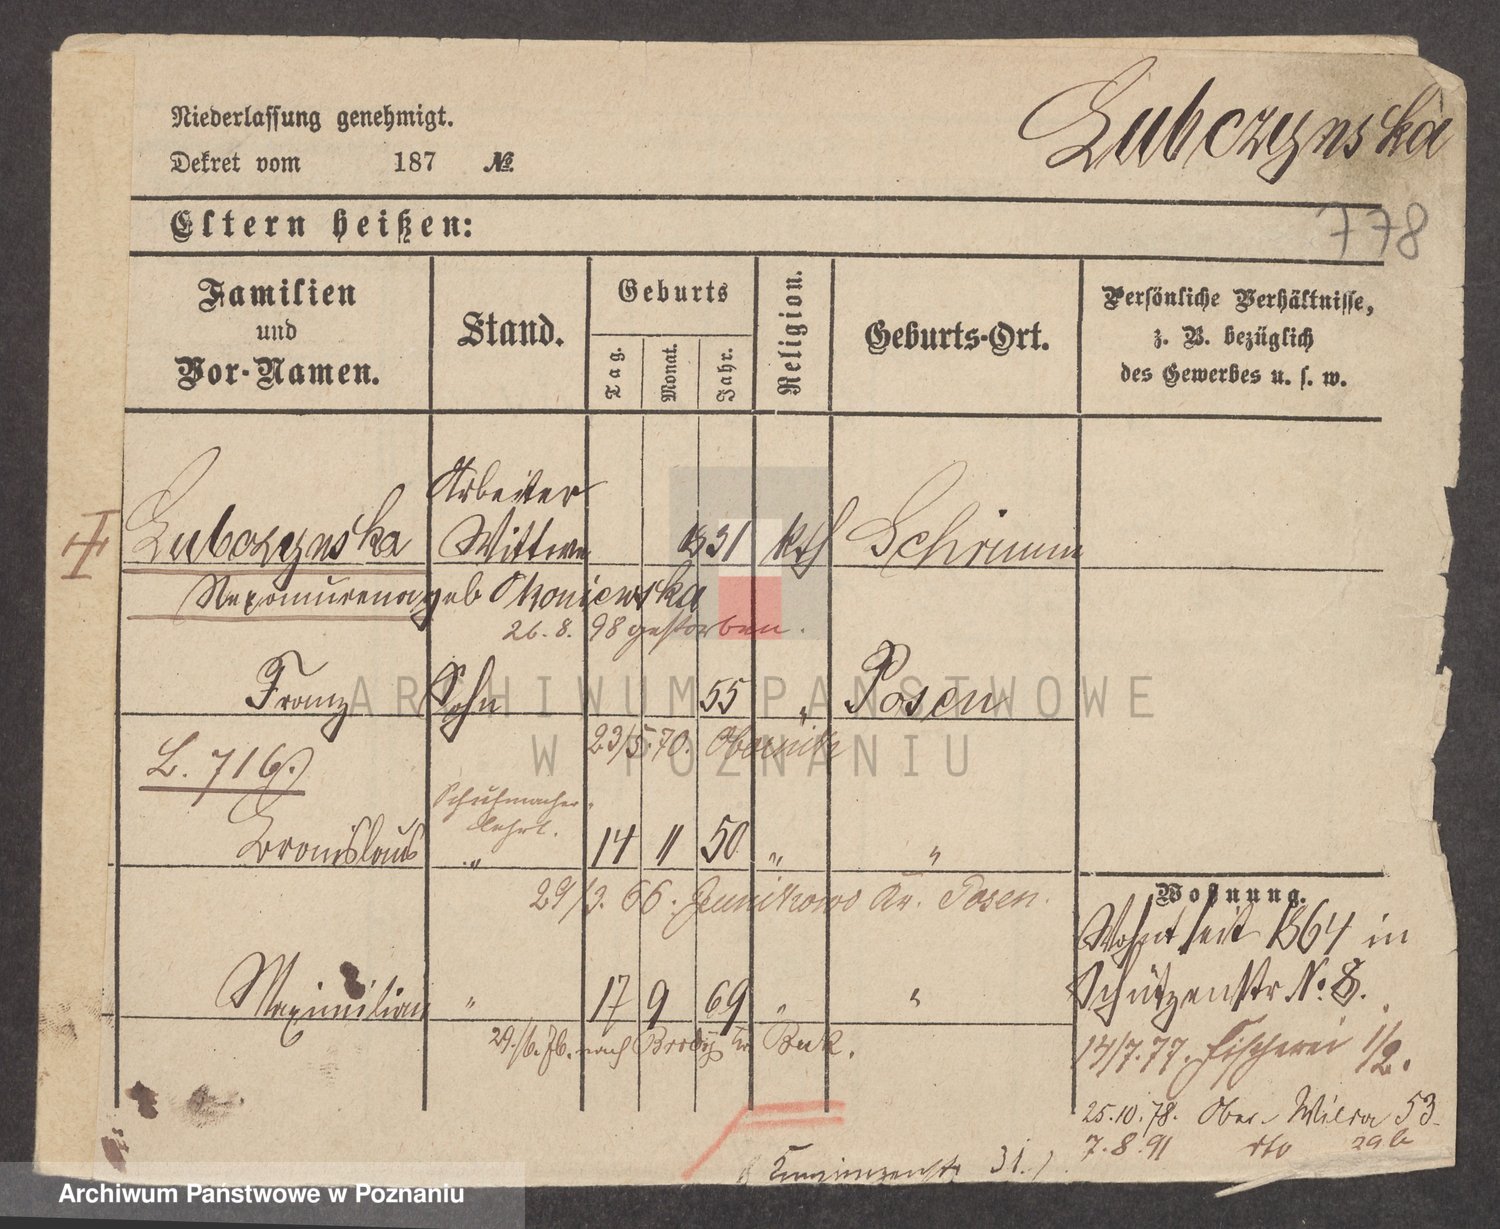 Niederlassung genehmigt.
Dekret vom 187 No.
Lubczynska
778
Eltern heißen:
Familien und Vor-Namen.
Stand.
Geburts
Tag.
Monat.
Jahr.
Religion.
Geburts-Ort.
Persönliche Verhältnisse, z. B. bezüglich des Gewerbes u. s. w.
Arbeiter
Lubczynska Wittwe 1831 kth Schrimm
Nepomucena geb Okoniewska
26. 8. 98 gestorben.
Franz Sohn 55 " Posen
23/5. 70. Obornik
L. 716.
Schuhmacher
Lehrl.
Bronislaus " 14 11 50 " "
29/3. 66. Junikowo Kr. Posen.
Wohnung.
Wohnt seit 1864 in
Schützenstr No. 8.
Maximilian " 17 9 69 " "
29./6. 76. nach Brody Kr Buk.
14/7. 77. Fischerei 1/2.
25.10.78. Ober-Wilda 53
7. 8. 91 dto 29b
31.
ARCHIWUM PAŃSTWOWE
W POZNANIU
Archiwum Państwowe w Poznaniu